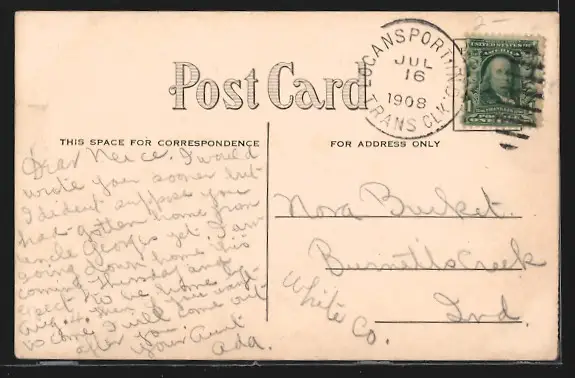 2-
LOGANSPORT, IND.
JUL
16
1908
TRANS. CLK.
UNITED STATES OF AMERICA
1 ONE CENT 1
Post Card
THIS SPACE FOR CORRESPONDENCE
FOR ADDRESS ONLY
Dear Neice. I would
wrote you sooner but
I dident suppose you
had gotten home from
uncle Georges yet. I am
going down home this
coming Thursday and
expect to be home by
Aug. 4. then if you want
to come I will come out
after you.
your Aunt
Ada.
Nora Burket.
Burnetts Creek
White Co.
Ind.